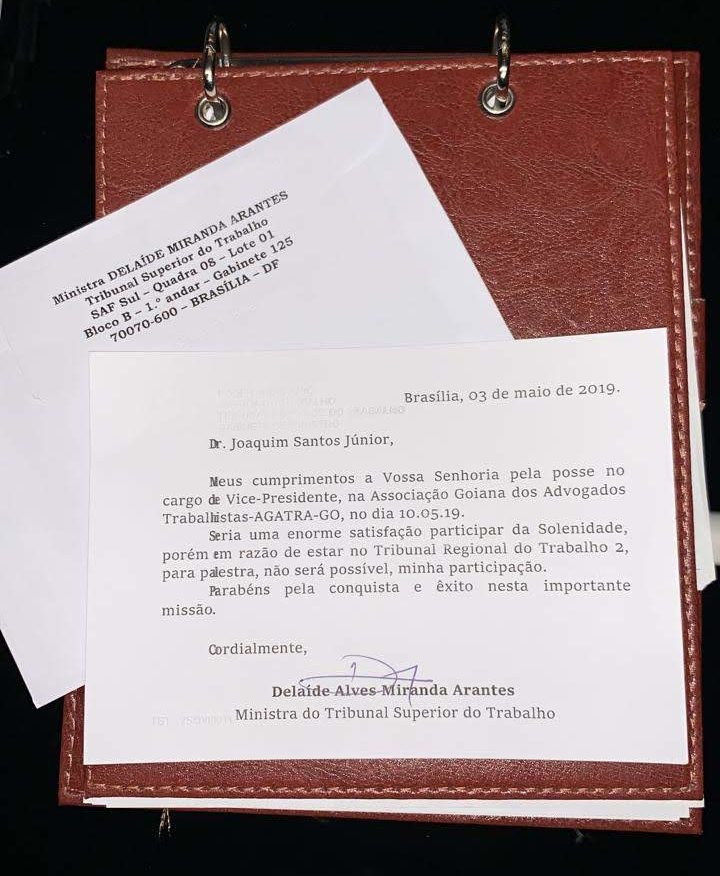 Ministra DELAÍDE MIRANDA ARANTES
Tribunal Superior do Trabalho
SAF Sul – Quadra 08 – Lote 01
Bloco B – 1.º andar – Gabinete 125
70070-600 – BRASÍLIA – DF
Brasília, 03 de maio de 2019.
Dr. Joaquim Santos Júnior,
Meus cumprimentos a Vossa Senhoria pela posse no
cargo de Vice-Presidente, na Associação Goiana dos Advogados
Trabalhistas-AGATRA-GO, no dia 10.05.19.
Seria uma enorme satisfação participar da Solenidade,
porém em razão de estar no Tribunal Regional do Trabalho 2,
para palestra, não será possível, minha participação.
Parabéns pela conquista e êxito nesta importante
missão.
Cordialmente,
Delaíde Alves Miranda Arantes
Ministra do Tribunal Superior do Trabalho